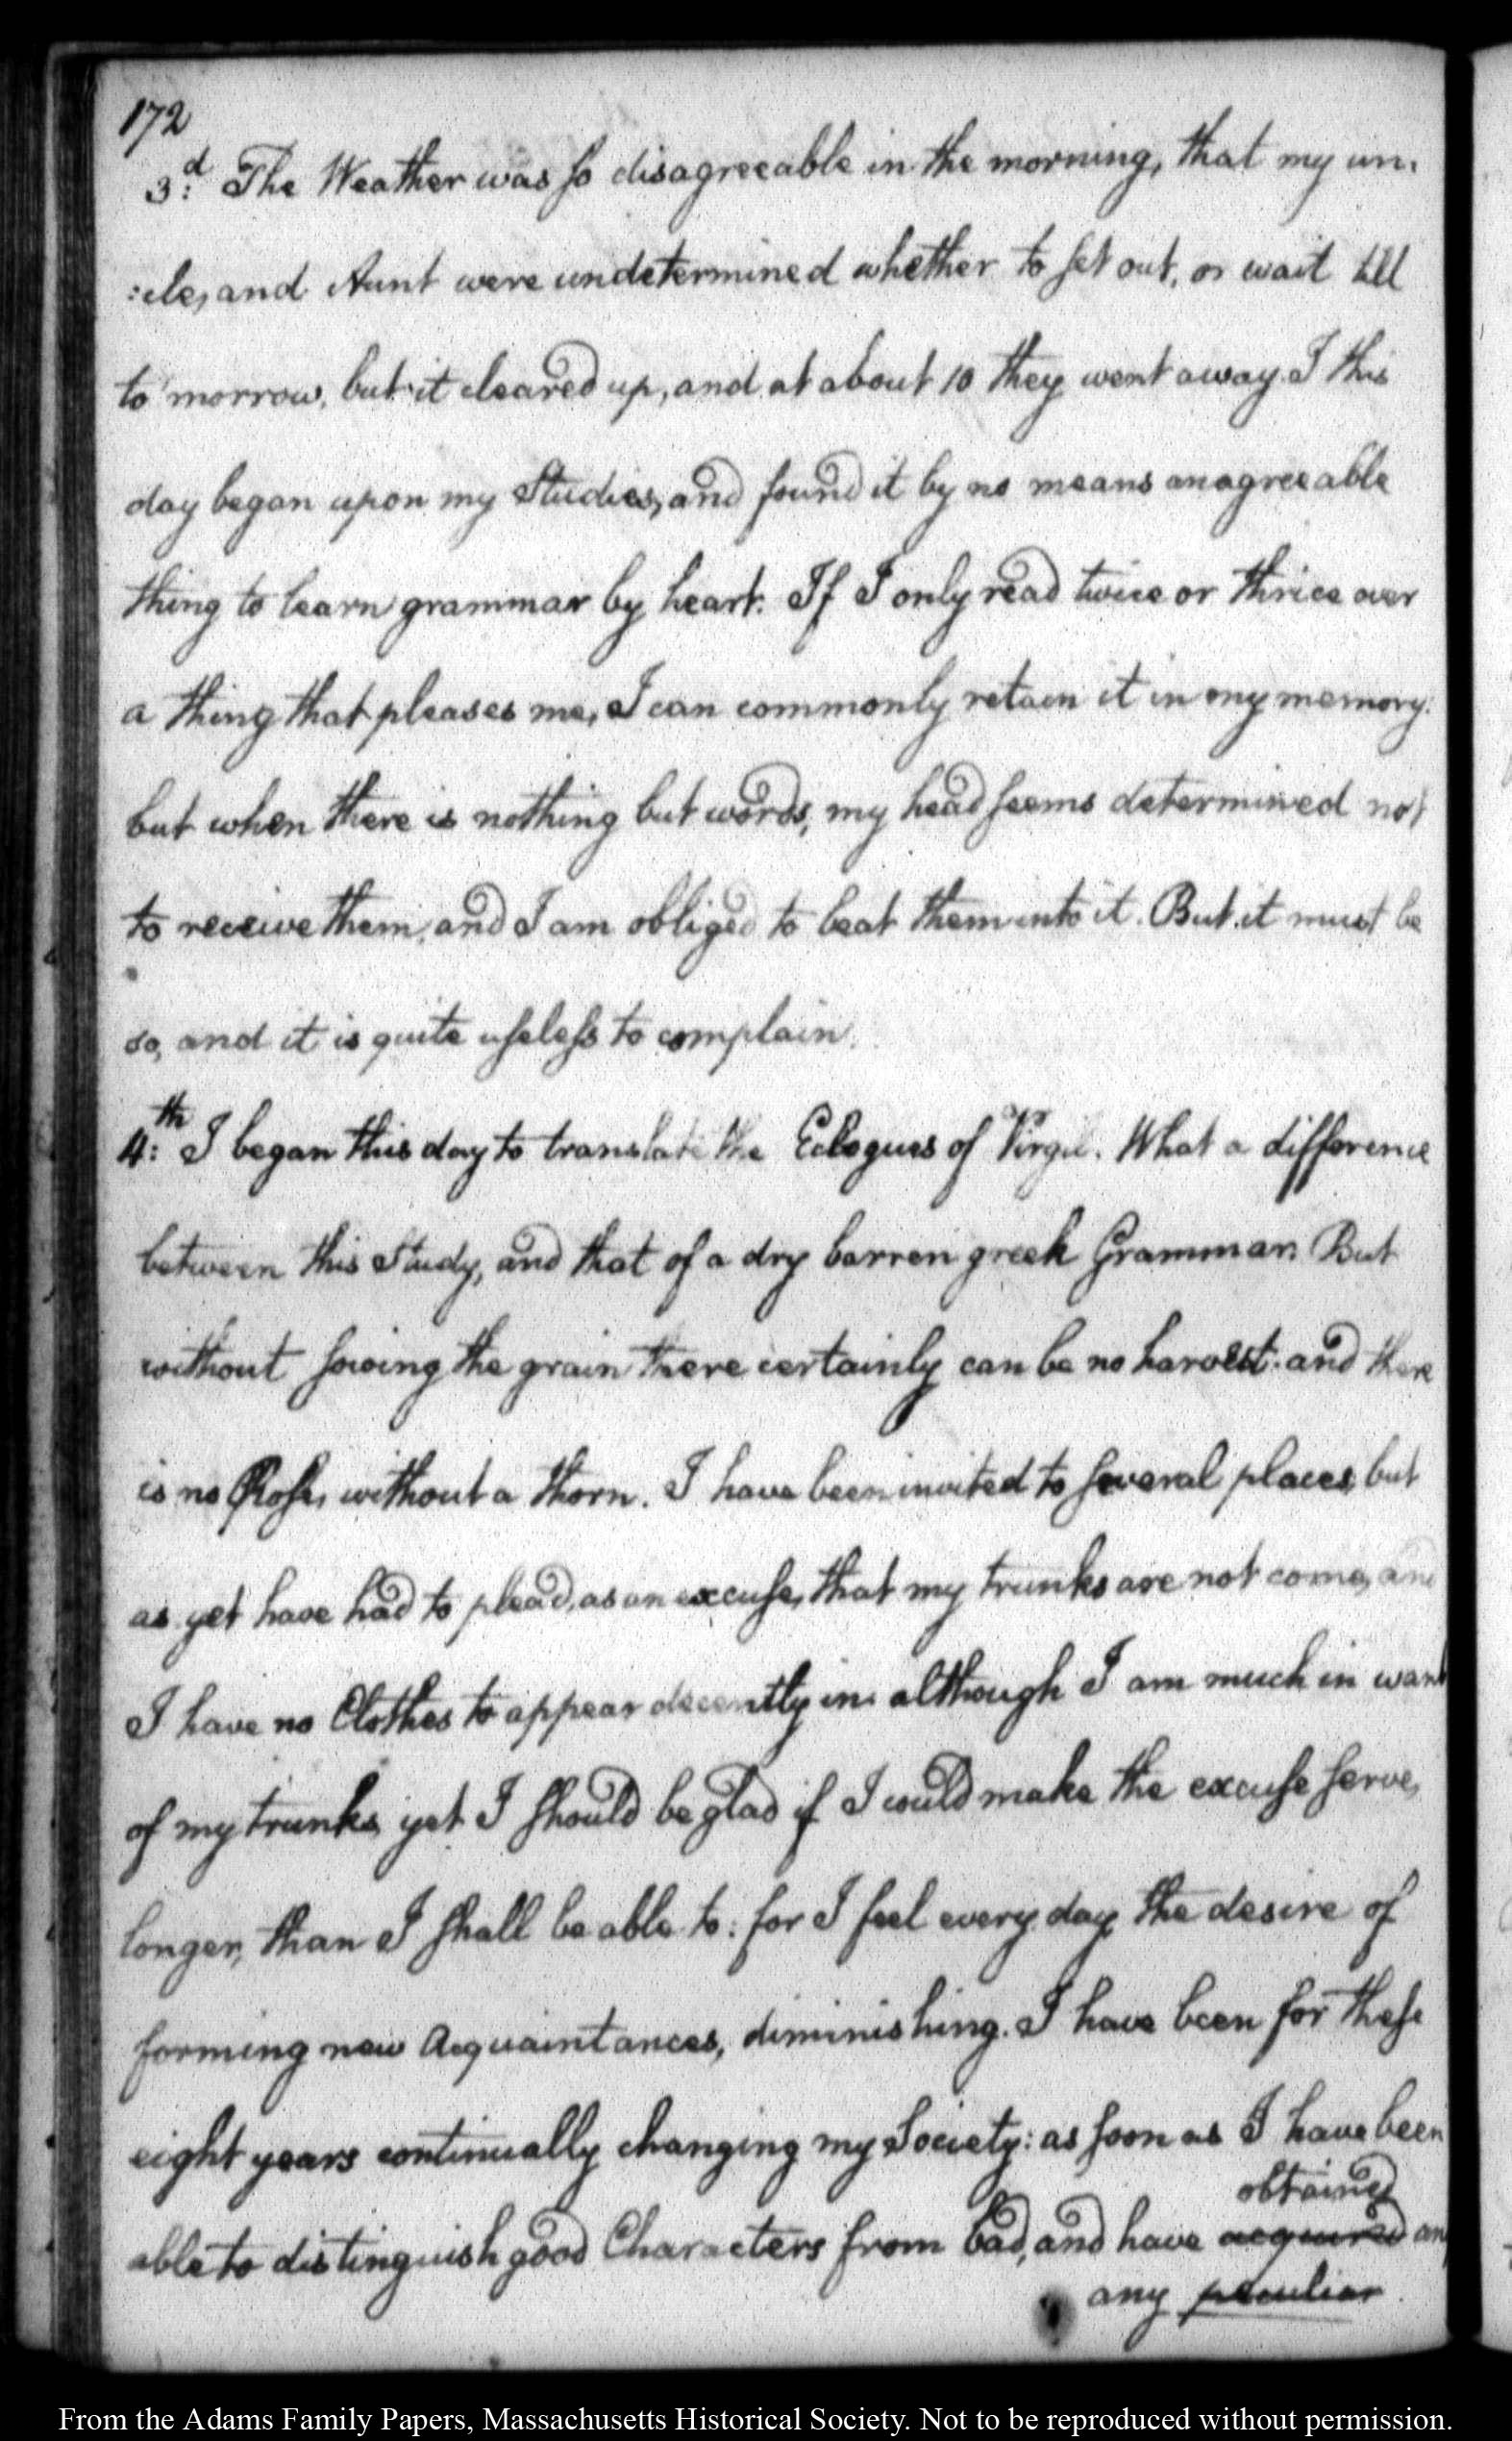 172
3:d The Weather was so disagreeable in the morning, that my un:
:cle, and Aunt were undetermined whether to set out, or wait till
to morrow, but it cleared up, and at about 10 they went away. I this
day began upon my Studies, and found it by no means an agreeable
thing to learn grammar by heart. If I only read twice or thrice over
a thing that pleases me, I can commonly retain it in my memory.
but when there is nothing but words, my head seems determined not
to receive them, and I am obliged to beat them into it. But it must be
so, and it is quite useless to complain.
4:th I began this day to translate the Eclogues of Virgil. What a difference
between this Study, and that of a dry barren greek Grammar. But
without sowing the grain there certainly can be no harvest: and there
is no Rose, without a thorn. I have been invited to several places, but
as yet have had to plead, as an excuse, that my trunks are not come, and
I have no Clothes to appear decently in: although I am much in want
of my trunks, yet I should be glad if I could make the excuse serve,
longer, than I shall be able to: for I feel every day, the desire of
forming new Acquaintances, diminishing. I have been for these
eight years continually changing my Society: as soon as I have been
obtained
able to distinguish good Characters from bad, and have acquired any
any peculiar
From the Adams Family Papers, Massachusetts Historical Society. Not to be reproduced without permission.